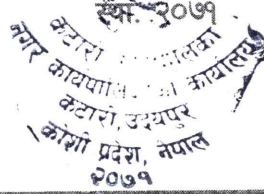 स्था. २०७१
कटारी
नगर कार्यपालिका कार्यालय
कटारी, उदयपुर
कोशी प्रदेश, नेपाल
२०७१